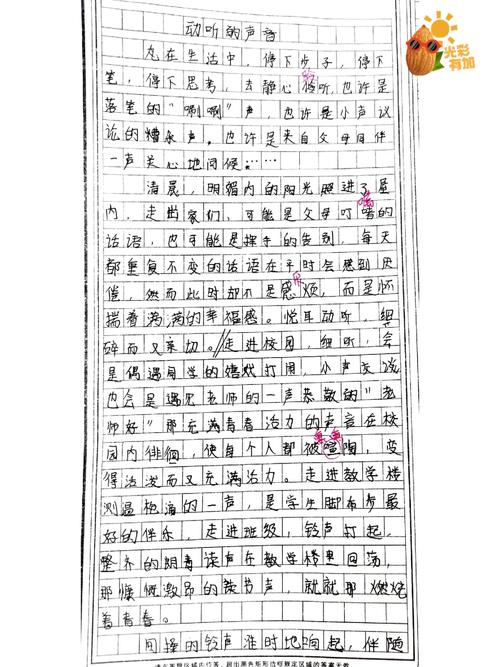 光彩
有加
动听的声音
在生活中，停下步子，停下
笔，停下思考，去静心倾听，也许是
落笔的“唰唰”声，也许是小声议
论的嘈杂声。也许是来自父母同伴
一声关心地问候……
清晨，明媚的阳光照进了屋
内，走出家门，可能是父母叮嘱的
话语，也可能是挥手的告别，每天
都重复不变的话语在平时会感到厌
倦，然而此时却不是感烦，而是怀
揣着满满的幸福感。悦耳动听，细
碎而又亲切。//走进校园，细听，会
是偶遇同学的嬉戏打闹，小声交谈
也会是遇见老师的一声恭敬的“老
师好”那充满青春活力的声音在校
园内徘徊，使每个人都被熏陶，变
得活泼而又充满活力。走进教学楼
测温的一声，是学生脚步最
好的伴乐，走进班级，铃声打起，
整齐的朗读声在教学楼里回荡，
那慷慨激昂的读书声，就那燃烧
着青春。
的铃声准时地响起，伴随
请在答题区域内作答，超出黑色矩形边框限定区域的答案无效